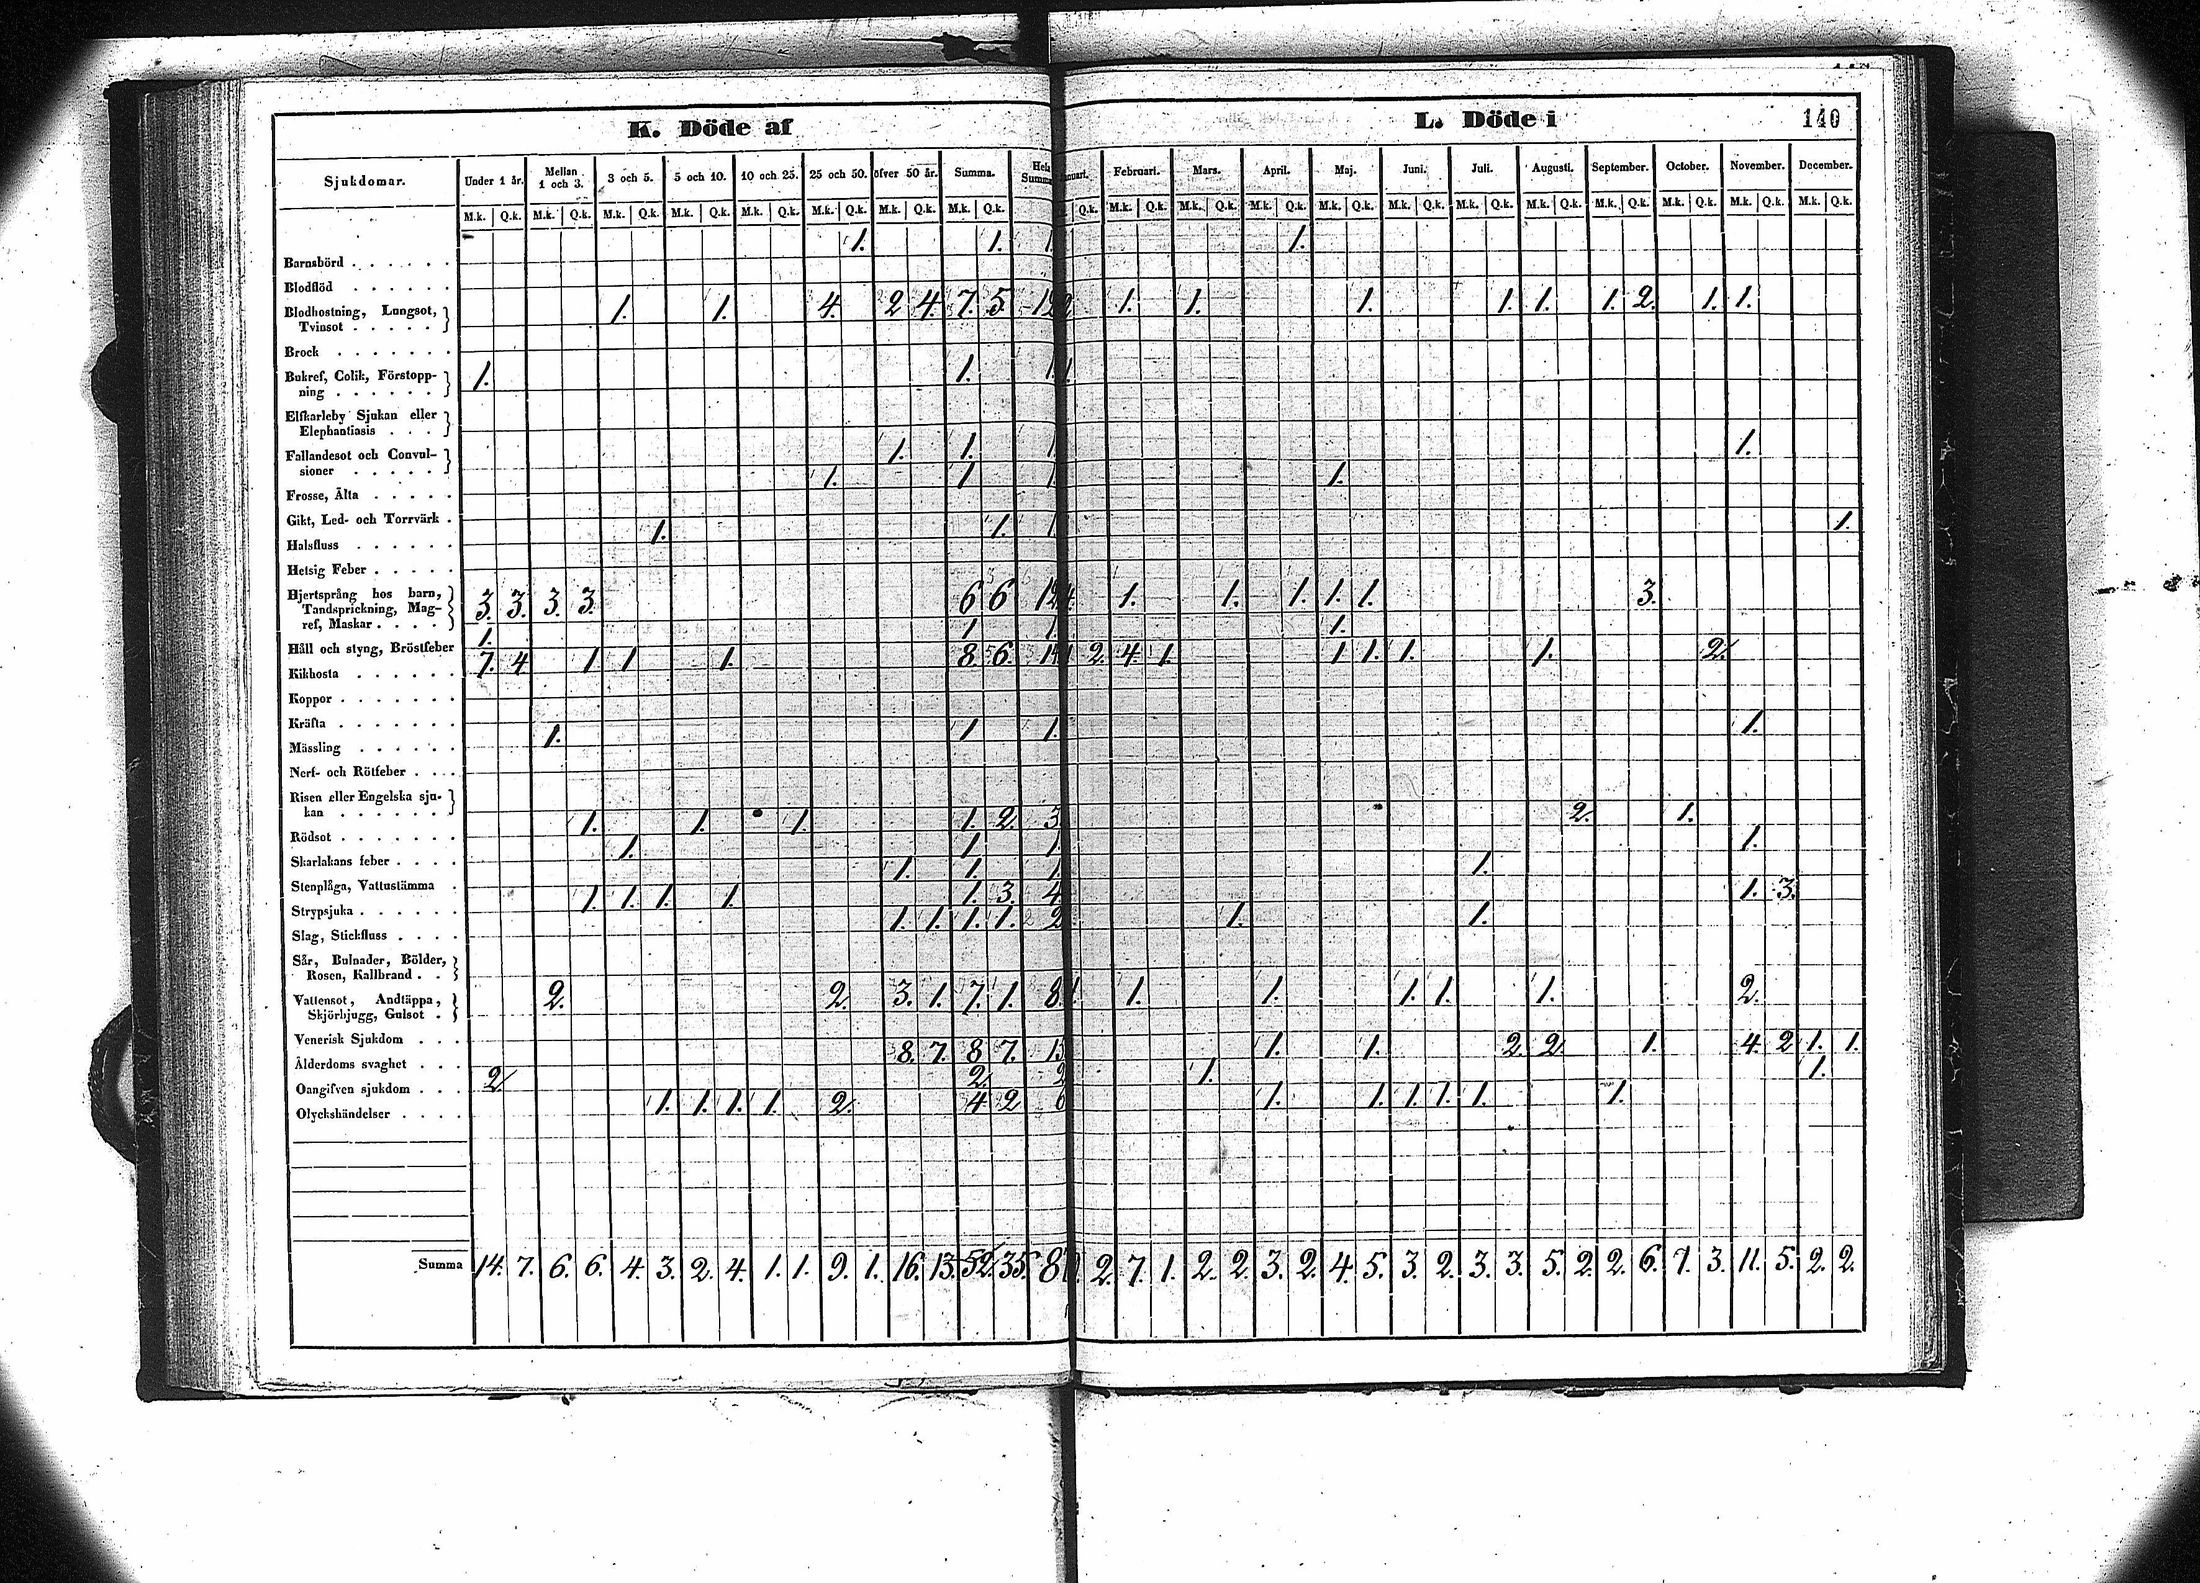 K. Döde af
L. Döde i
140
Sjukdomar. Under 1 år. Mellan 1 och 3. 3 och 5. 5 och 10. 10 och 25. 25 och 50. öfver 50 år. Summa. Hela Summa Februari. Mars. April. Maj. Juni. Juli. Augusti. September. October. November. December.
M.k. Q.k. M.k. Q.k. M.k. Q.k. M.k. Q.k. M.k. Q.k. M.k. Q.k. M.k. Q.k. M.k. Q.k. Q.k. M.k. Q.k. M.k. Q.k. M.k. Q.k. M.k. Q.k. M.k. Q.k. M.k. Q.k. M.k. Q.k. M.k. Q.k. M.k. Q.k. M.k. Q.k. M.k. Q.k.
1. 1. 1. 1.
Barnsbörd
Blodflöd
Blodhostning, Lungsot,
Tvinsot 1. 1. 4. 2 4. 7. 5. 12 2 1. 1. 1. 1. 1. 1. 2. 1. 1.
Brock
Bukref, Colik, Förstopp-
ning 1. 1. 1. 1.
Elfkarleby Sjukan eller
Elephantiasis
Fallandesot och Convul- 1. 1. 1. 1.
sioner 1. 1 1. 1.
Frosse, Älta
Gikt, Led- och Torrvärk
Halsfluss 1. 1. 1. 1.
Hetsig Feber
Hjertsprång hos barn,
Tandsprickning, Mag- 3. 3. 3. 3. 6 6. 12 4. 1. 1. 1. 1. 1. 3.
ref, Maskar
Håll och styng, Bröstfeber 1. 1 1. 1.
Kikhosta 7. 4. 1. 1. 1. 8. 6. 14 1 2. 4. 1. 1. 1. 1. 1. 2.
Koppor
Kräfta
Mässling 1. 1 1. 1.
Nerf- och Rötfeber
Risen eller Engelska sju-
kan
Rödsot 1. 1. 1. 1. 2. 3 2. 1.
Skarlakans feber 1. 1 1. 1.
Stenplåga, Vattustämma 1. 1. 1. 1.
Strypsjuka 1. 1. 1. 1. 1. 3. 4 1. 3.
Slag, Stickfluss 1. 1. 1. 1. 2 1. 1.
Sår, Bulnader, Bölder,
Rosen, Kallbrand
Vattensot, Andtäppa,
Skjörbjugg, Gulsot 2. 2. 3. 1. 7. 1. 8. 1. 1. 1. 1. 1. 1. 2.
Venerisk Sjukdom
Ålderdoms svaghet 8. 7. 8 7. 15 1. 1. 2. 2. 1. 4. 2 1. 1.
Oangifven sjukdom 2. 2. 2 1. 1.
Olyckshändelser 1. 1. 1. 1. 2. 4 2. 6 1. 1. 1. 1. 1. 1.
Summa 14. 7. 6. 6. 4. 3. 2. 4. 1. 1. 9. 1. 16. 13. 52. 35. 87 2. 7. 1. 2. 2. 3. 2. 4. 5. 3. 2. 3. 3. 5. 2. 2. 6. 1. 3. 11. 5. 2. 2.